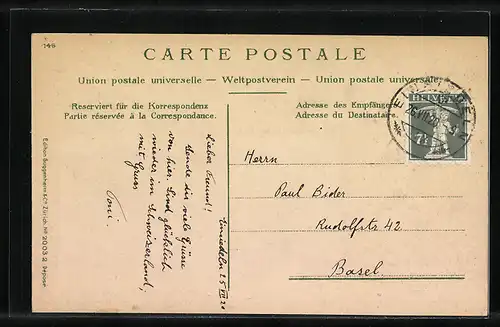 146
CARTE POSTALE
Union postale universelle — Weltpostverein — Union postale universale
Reserviert für die Korrespondenz
Partie réservée à la Correspondance.
Adresse des Empfängers
Adresse du Destinataire.
HELVETIA
7½
EINSIEDELN
26.VII.20
Einsiedeln 25 VII 20
Lieber Freund!
Sende dir viele Grüsse
von hier. Sind glücklich
wieder im Schweizerland,
mit Gruss
Toni.
Herrn
Paul Bider
Rudolfstr 42
Basel
Edition Guggenheim & Co. Zürich. No 2003 2 Déposé